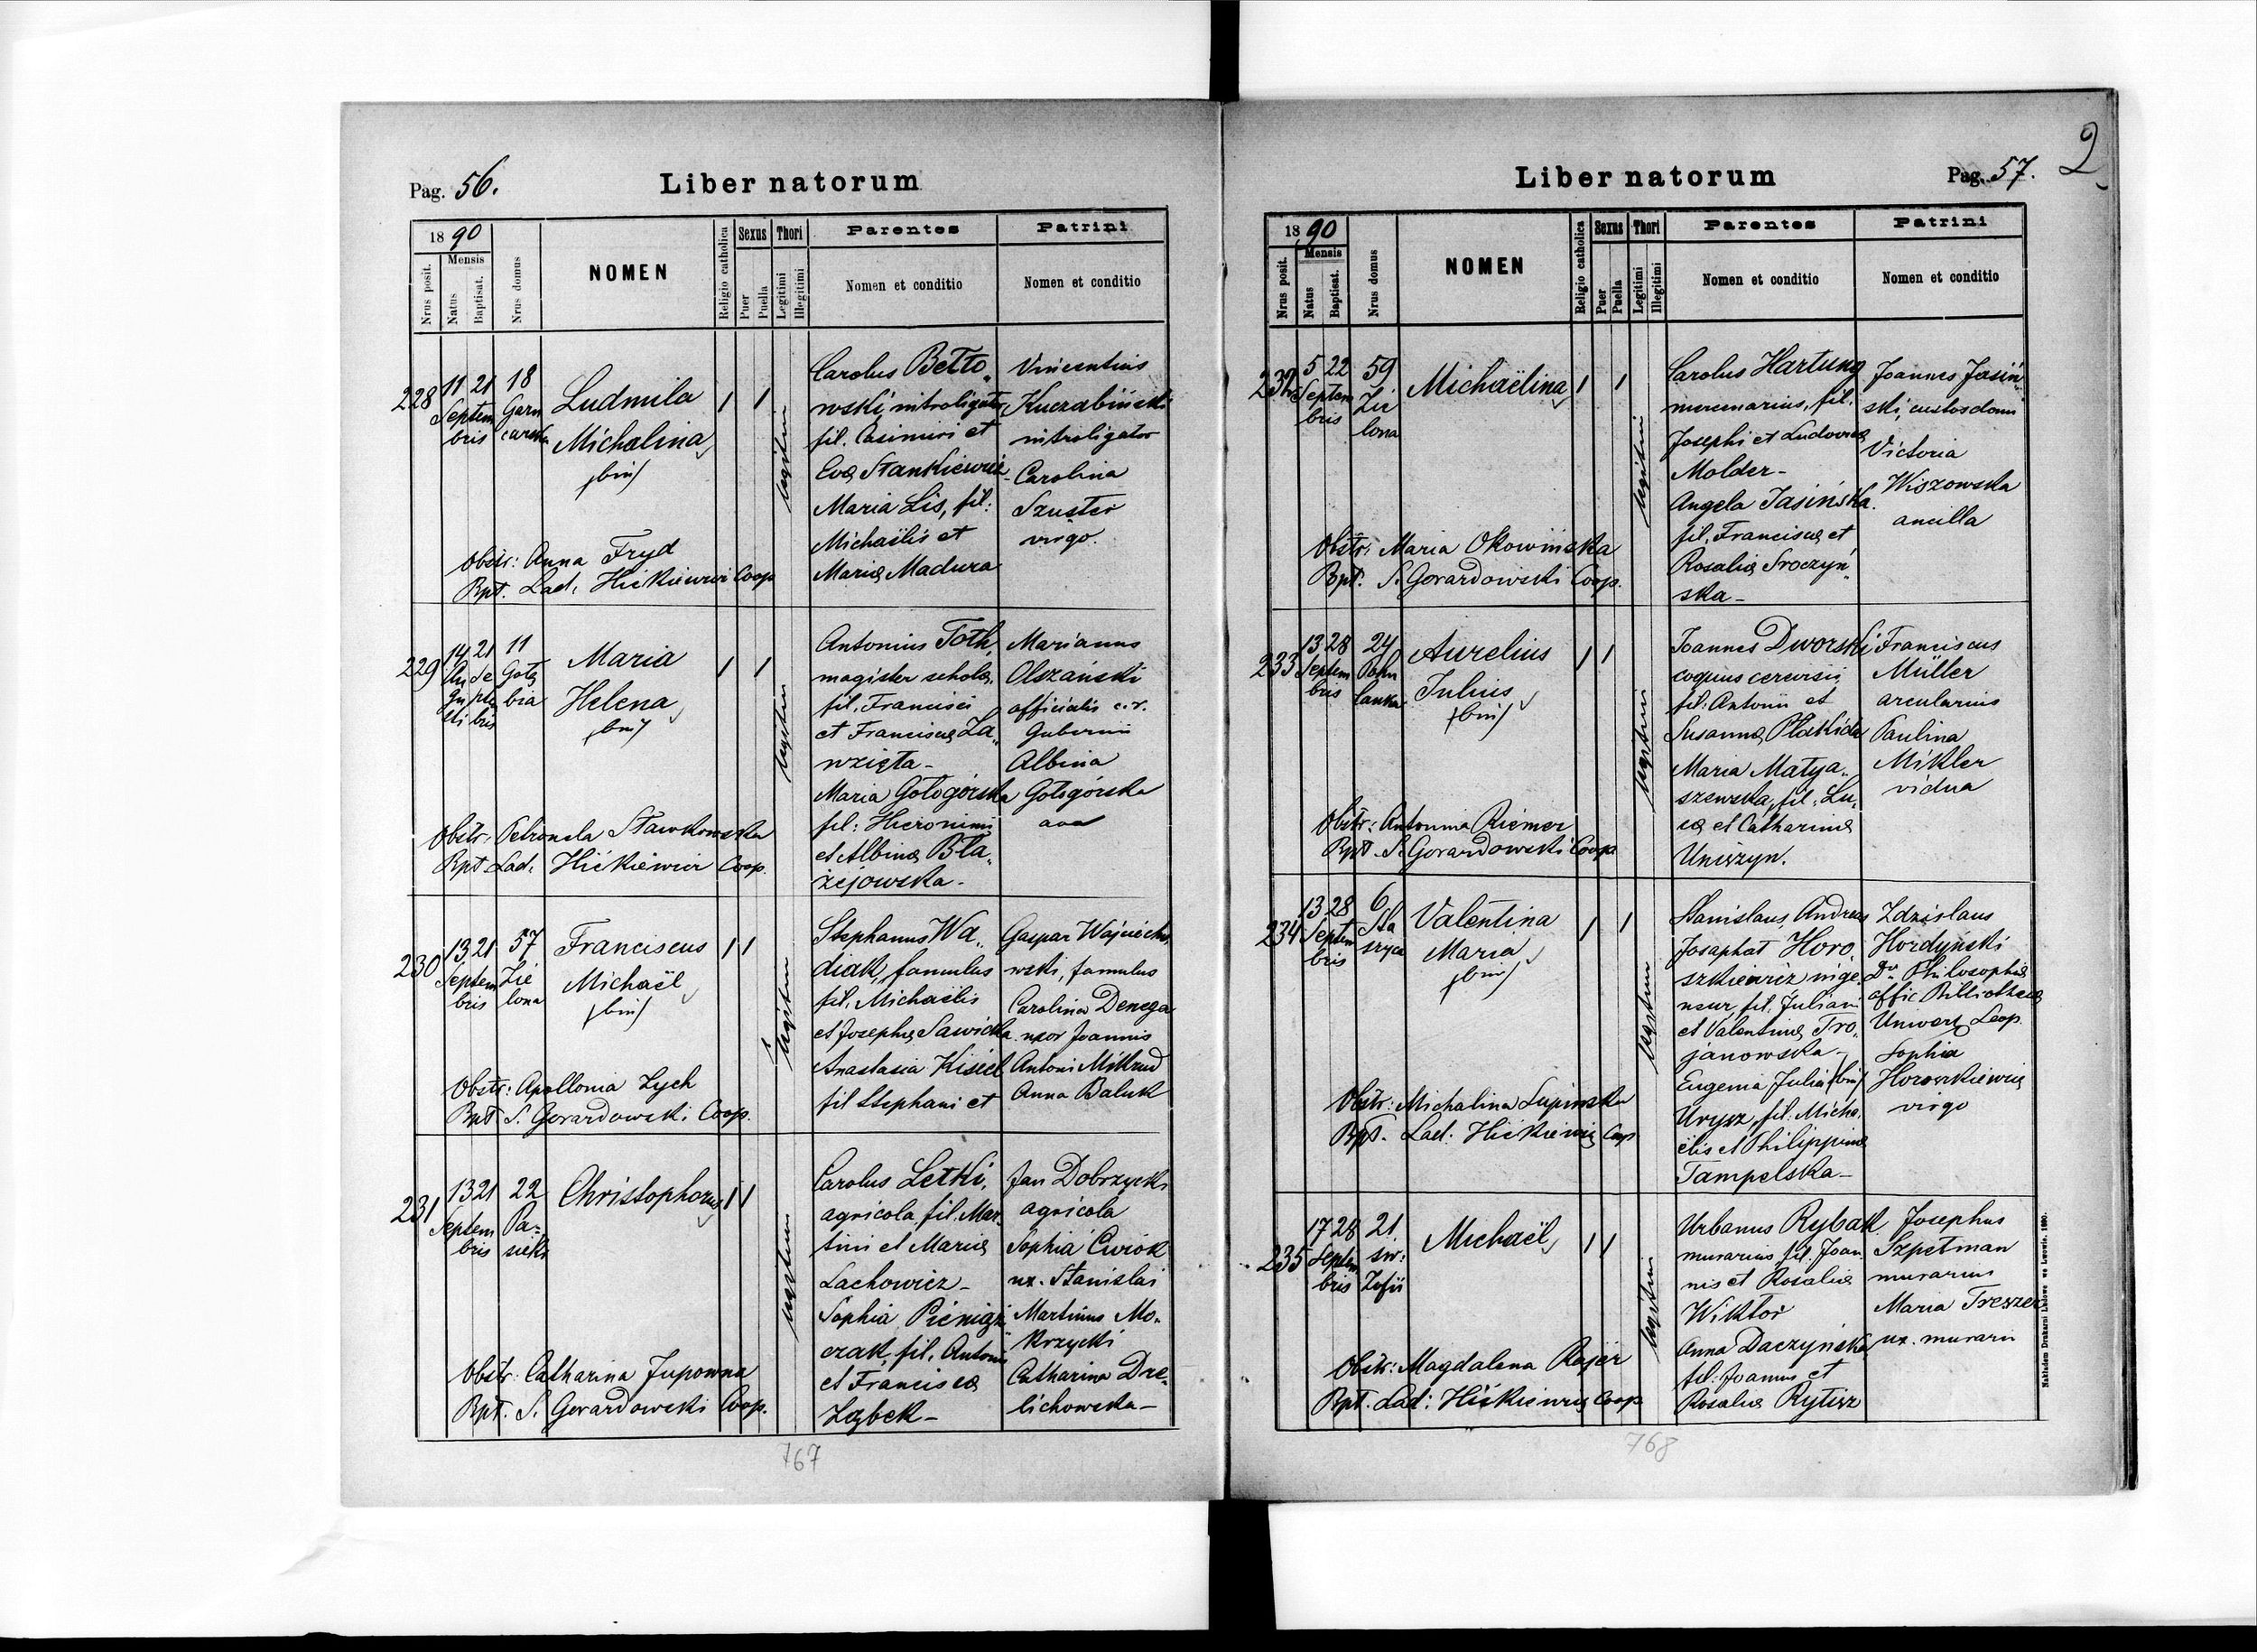 Pag. 56.
Liber natorum
18 90
Mensis
Nrus posit.
Natus
Baptisat.
Nrus domus
NOMEN
Religio catholica
Sexus
Puer
Puella
Thori
Legitimi
Illegitimi
Parentes
Nomen et conditio
Patrini
Nomen et conditio
228
11 21
Septem
bris
18
Garn
carska
Ludmila
Michalina
(bin)
Carolus Betto„
wski, introligator
fil. Casimiri et
Evæ Stankiewicz
Maria Lis, fil:
Michaëlis et
Mariæ Madura
Vincentius
Kuczabiński
introligator
Carolina
Szuster
virgo.
Obstr: Anna Fryd
Bpt. Lad. Hićkiewicz Coop
229
14 21
Au Se
gu pte
sti bris
11
Gołę
bia
Maria
Helena
(bin)
Antonius Toth,
magister scholæ,
fil. Francisci
et Franciscæ Za„
wzięta-
Maria Gołogórska
fil: Hieronimi
et Albinæ Bła„
żejowska-
Marianus
Olszański
officialis c.r.
Gubernii
Albina
Gołogórska
ava
Obstr. Petronela Sławkowska
Bpt Lad. Hićkiewicz Coop.
230
13 21
Septem
bris
57
Zie
lona
Franciscus
Michaël
(bin)
Stephanus Wa„
diak, famulus
fil. Michaëlis
et Josephæ Sawicka
Anastasia Kisiel
fil Stephani et
Gaspar Wojciecho
wski, famulus
Carolina Denega
uxor Joannis
Antoni Mikrud
Anna Baluk
Obstr: Apollonia Zych
Bpt. S. Gorardowski Coop.
231
13 21
Septem
bris
22
Pa-
sieki
Christophorus
Carolus Letki,
agricola, fil. Mar„
tini et Mariæ
Lachowicz-
Sophia Pieniąż„
czak, fil. Antonii
et Franciscæ
Ząbek-
Jan Dobrzycki
agricola
Sophia Cwiok
ux. Stanislai
Martinus Mo„
krzycki
Catharina Dre„
lichowska-
Obstr: Catharina Jupowna
Bpt. S. Gorardowski Coop.
767
Liber natorum
Pag. 57.
2
18 90
Mensis
Nrus posit.
Natus
Baptisat.
Nrus domus
NOMEN
Religio catholica
Sexus
Puer
Puella
Thori
Legitimi
Illegitimi
Parentes
Nomen et conditio
Patrini
Nomen et conditio
232
5 22
Septem
bris
59
Zie
lona
Michaëlina
Carolus Hartung
mercenarius, fil.
Josephi et Ludovicæ
Molder-
Angela Jasińska.
fil. Franciscæ et
Rosaliæ Sroczyń„
ska-
Joannes Jasiń„
ski, custos domi
Victoria
Wiszowska
ancilla
Obstr: Maria Okowińska
Bpt. S. Gorardowski Coop.
233
13 28
Septem
bris
24
Pohu
lanka
Aurelius
Julius
(bin)
Joannes Dworski
coquus cerevisiæ
fil: Antonii et
Susannæ Płakida
Maria Matya„
szewska, fil. Lu„
cæ et Catharinæ
Uniszyn.
Franciscus
Müller
arcularius
Paulina
Mikler
vidua
Obstr: Antonina Riemer
Bpt. S. Gorardowski Coop.
234
13 28
Septem
bris
6
Sta
szyca
Valentina
Maria
(bin)
Stanislaus, Andreas
Josaphat Horo„
szkiewicz inge„
neur, fil. Juliani
et Valentinæ Tro„
janowska-
Eugenia Julia (bin)
Urysz, fil: Micha„
ëlis et Philippinæ
Tampelska-
Zdzislaus
Hordyński
Dr Philosophiæ
offic Bibliothecæ
Uniwers Leop.
Sophia
Horoszkiewicz
virgo
Obstr: Michalina Lupinska
Bpt. Lad. Hićkiewicz Coop
235
17 28
Septem
bris
21
św:
Zofii
Michaël
Urbanus Rybak
murarius, fil. Joan„
nis et Rosaliæ
Wiktor
Anna Daczyńska
fil: Joannis et
Rosaliæ Rytisz
Josephus
Szpetman
murarius
Maria Treszer
ux. murarii
Obstr: Magdalena Rajer
Bpt. Lad: Hićkiewicz Coop.
Nakładem Drukarni Ludowe we Lwowie. 1890.
768